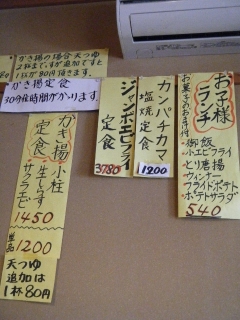 かき揚の場合天つゆ
2杯まいが追加ですと
1杯が80円頂きます。
かき揚定食
30分位時間がかゝります。
かき揚定食
小柱
生しらす
サクラエビ
1450
単品
1200
天つゆ
追加は
1杯80円
ジャンボエビフライ
定食
3780
カンパチカマ
塩焼定食
1200
お子様
ランチ
お菓子のおまけ付
・御飯
・小エビフライ
・とり唐揚
・ウィンナー
・フライドポテト
・ポテトサラダ
540